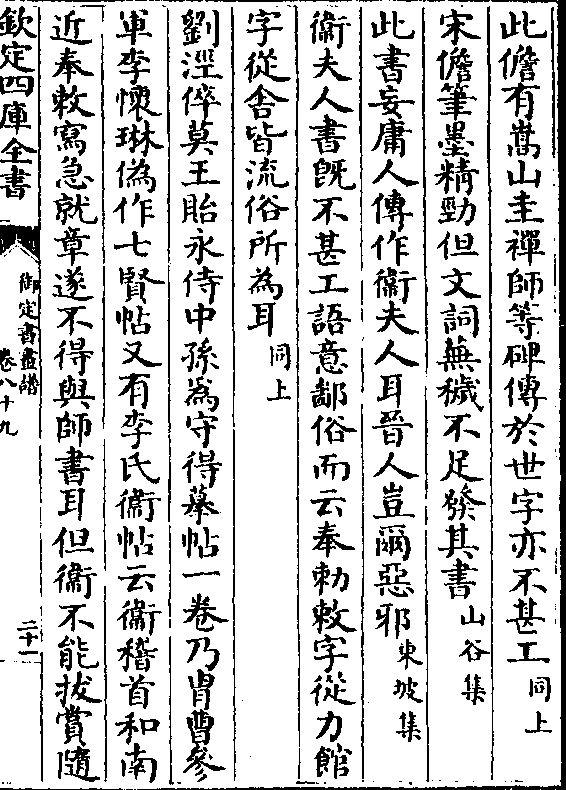 此儋有嵩山圭禪師等碑傳於世字亦不甚工同上
宋儋筆墨精勁但文詞蕪穢不足發其書山谷集
此書妄庸人傳作衞夫人耳晉人豈爾惡邪東坡集
衞夫人書旣不甚工語意鄙俗而云奉勅敕字從力館
字從舍皆流俗所為耳同上
劉涇倅莫王貽永侍中孫為守得摹帖一卷乃胄曹參
軍李懷琳偽作七賢帖又有李氏衞帖云衞稽首和南
近奉敕寫急就章遂不得與師書耳但衞不能拔賞隨
欽定四庫全書
御定書畫譜
卷八十九
二十一